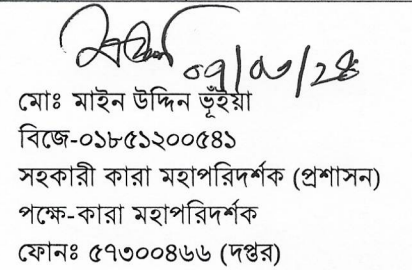 ০৭/০৩/২৪
মোঃ মাইন উদ্দিন ভূঁইয়া
বিজে-০১৮৫১২০০৫৪১
সহকারী কারা মহাপরিদর্শক (প্রশাসন)
পক্ষে-কারা মহাপরিদর্শক
ফোনঃ ৫৭৩০০৪৬৬ (দপ্তর)